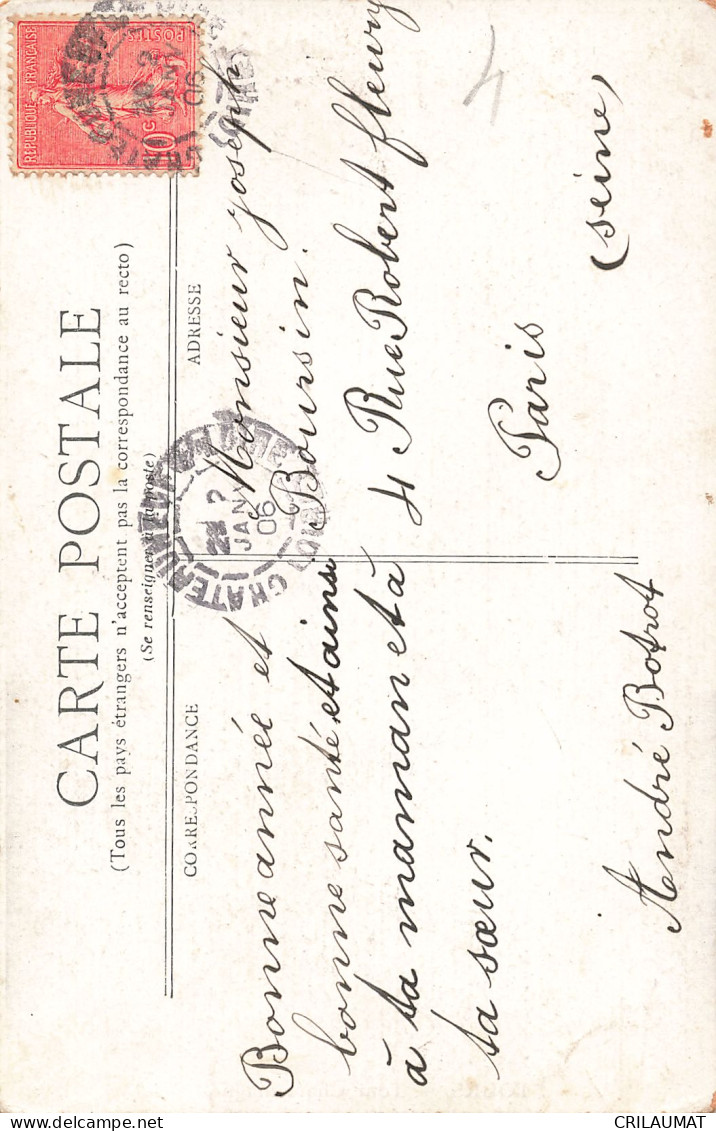 CARTE POSTALE
(Tous les pays étrangers n'acceptent pas la correspondance au recto)
(Se renseigner à la poste)
CORRESPONDANCE
ADRESSE
Bonne année et
bonne santé et ainsi
à ta maman et à
ta sœur.
André Botrot
Monsieur Joseph
Boursin.
4 Rue Robert fleury
Paris
(seine)
REPUBLIQUE FRANÇAISE
POSTES
10c
2
JANV
06
2
JANV
06
4
CRILAUMAT